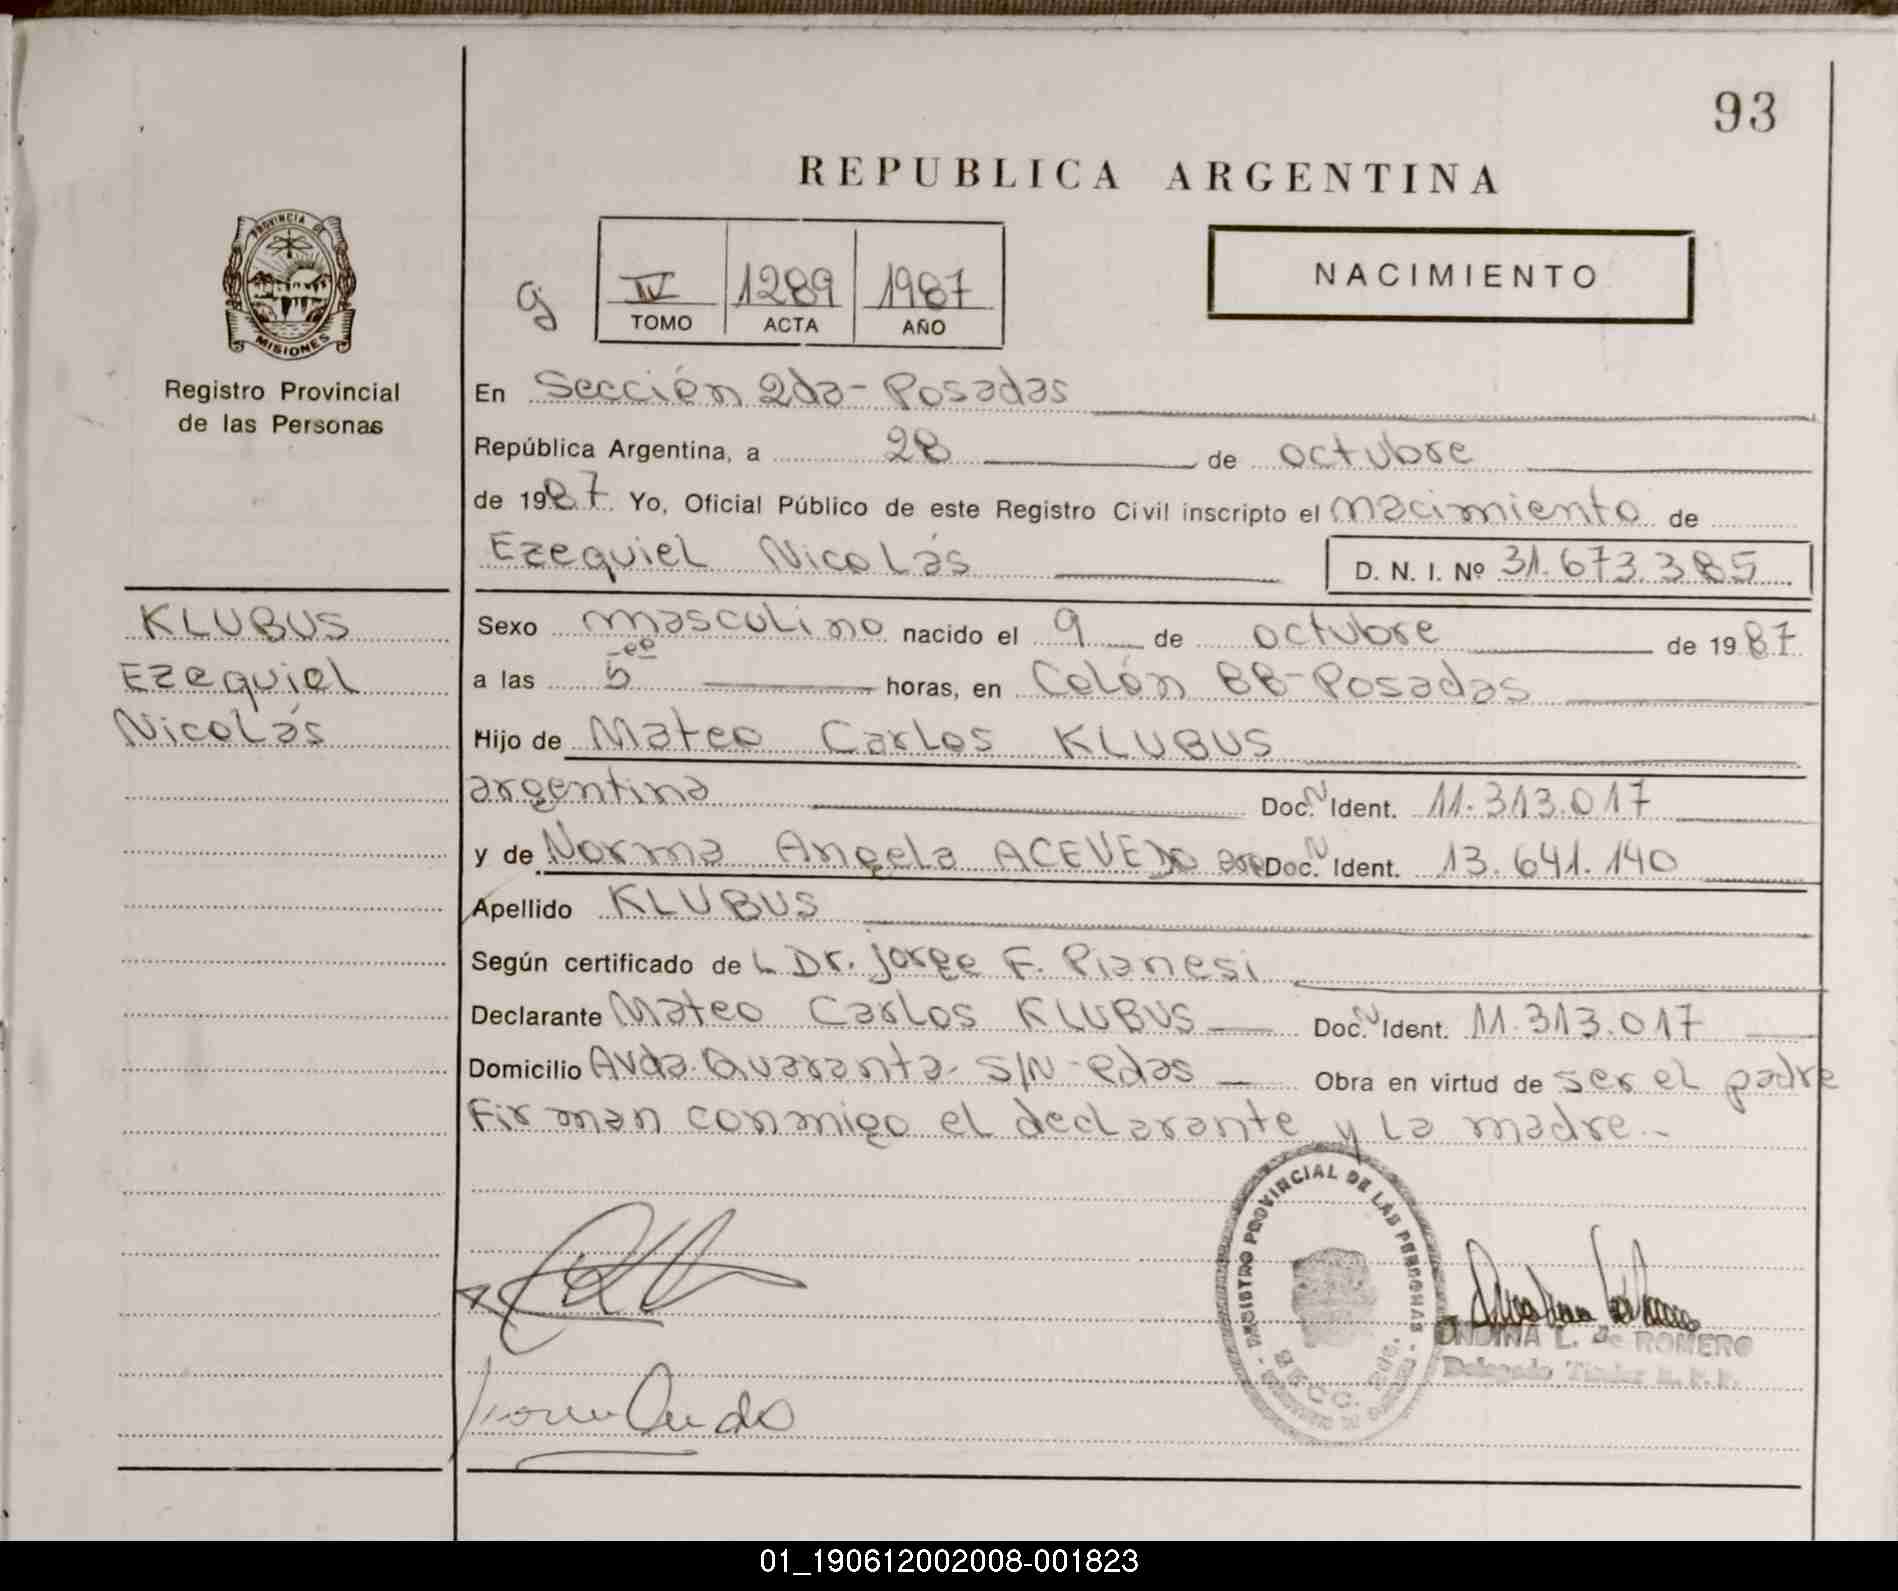 93
REPUBLICA ARGENTINA
PROVINCIA DE
MISIONES
Registro Provincial
de las Personas
g
IV 1289 1987
TOMO ACTA AÑO
NACIMIENTO
En Sección 2da - Posadas
República Argentina, a 28 de octubre
de 1987 Yo, Oficial Público de este Registro Civil inscripto el nacimiento de
Ezequiel Nicolás D. N. I. Nº 31.673.385
KLUBUS
Ezequiel
Nicolás
Sexo masculino nacido el 9 de octubre de 1987
a las 5 oo horas, en Colón 88-Posadas
Hijo de Mateo Carlos KLUBUS
argentina Doc. N Ident. 11.313.017
y de Norma Angela ACEVEDO Doc. N Ident. 13.641.140
Apellido KLUBUS
Según certificado de L Dr. Jorge F. Pianesi
Declarante Mateo Carlos KLUBUS Doc. N Ident. 11.313.017
Domicilio Avda. Quaranta - S/N - Pdas Obra en virtud de ser el padre
Firman conmigo el declarante y la madre.-
REGISTRO PROVINCIAL DE LAS PERSONAS
SECC. 2da.
ONDINA L. de ROMERO
Delegado Titular R. P. P.
01_190612002008-001823